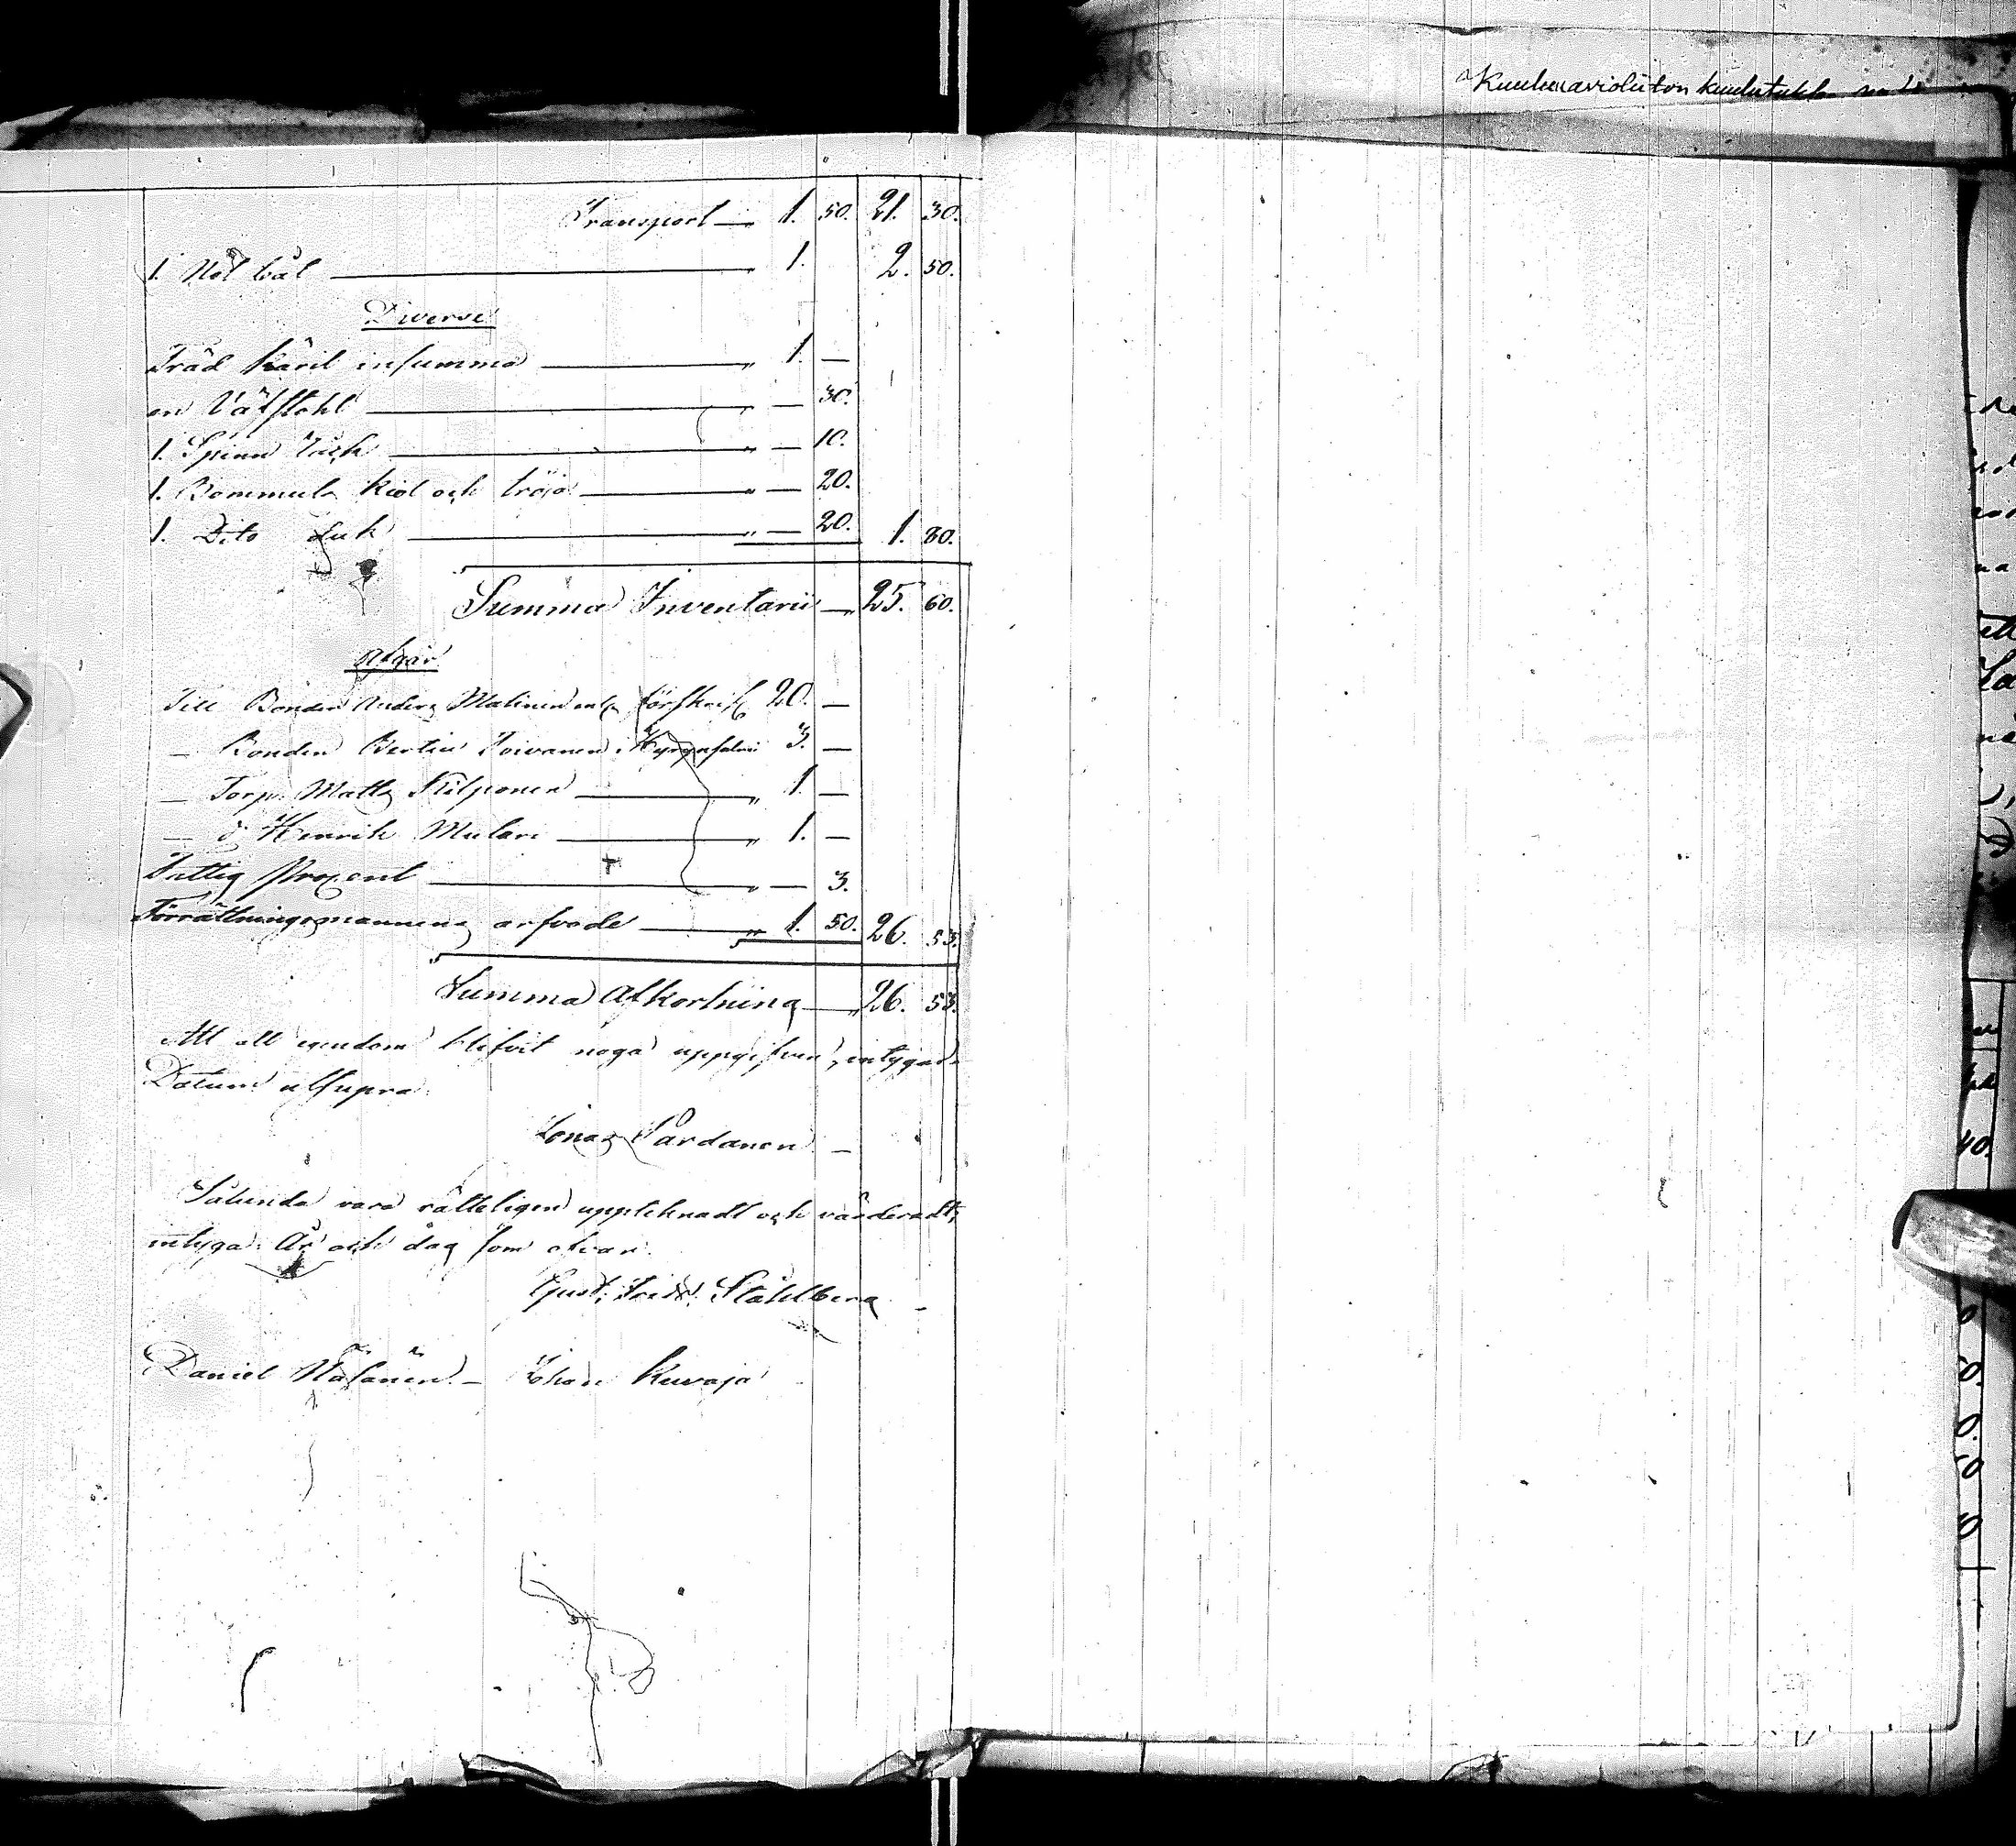 Kuulu avioliiton kuulutukk
Transport — 1. 50. 21. 30.
1. Nöt 1. 2. 50.
Diverse
Träd Käril insumma — " 1. —
en Väfstohl — " — 30.
1. Spinn råck — " — 10.
1. Bommuls kiol och tröja — " — 20.
1. Dito duk — " — 20. 1. 80.
Summa Inventarii — 25. 60.
Afgår
Till Bonden Anders Malinen förskrif 20. —
— Bonden Bertil Toivanen i Hyrynsalmi 3. —
— Torp. Matts Kilponen — " 1. —
— d:o Henrik Mulari — " 1. —
Fattig Procent — " — 3.
Förrättningsmannens arfvode — " 1. 50. 26. 53.
Summa Afkortning — 26. 53.
Att all egendom blifvit noga uppgifven, intygar.
Datum utsupra
Jonas Pardanen —
Sålunda vara rätteligen uppteknadt och värderadt,
intyga. År och dag som ofvan.
Gust. Fredr. Ståhlberg —
Daniel Näsänen — Johan Kuvaja